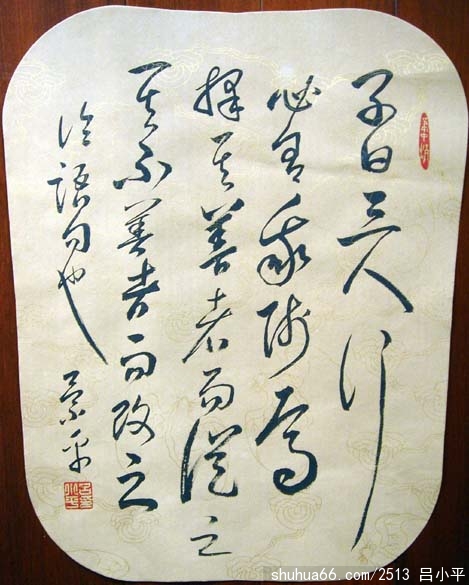 子曰三人行
必有我師焉
擇其善者而從之
其不善者而改之
論語句也
shuhua66.com/2513 吕小平